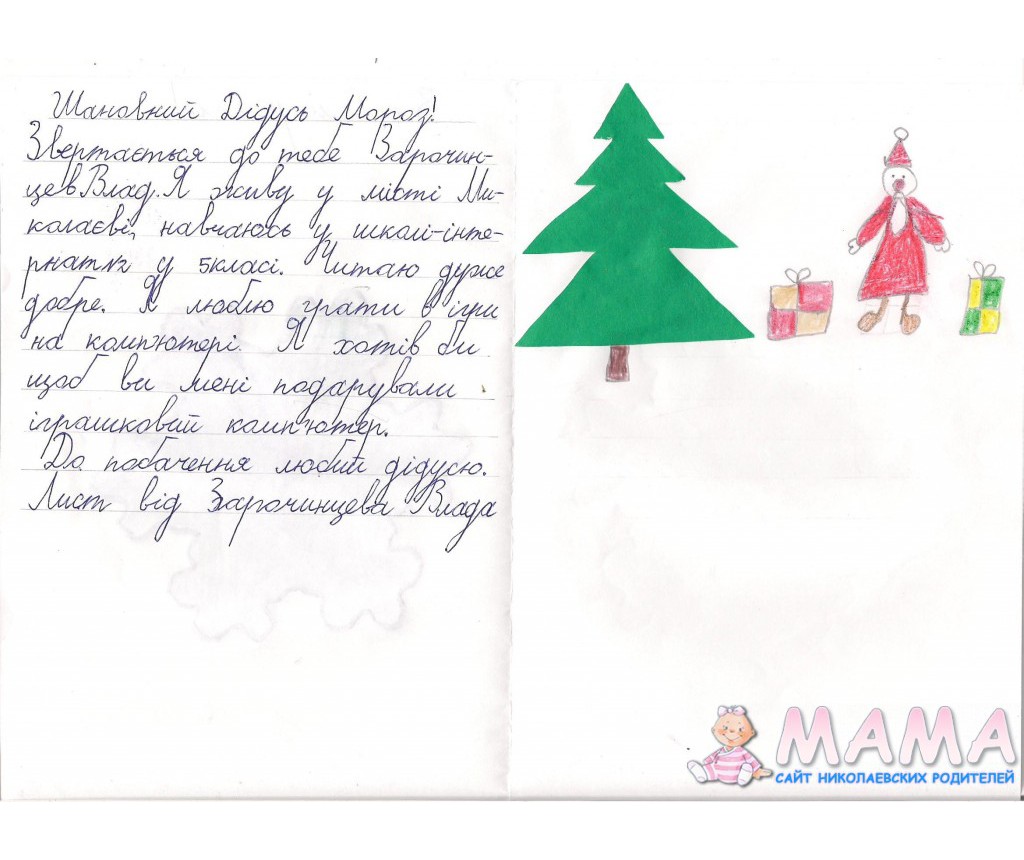 Шановний Дідусь Мороз!
Звертається до тебе Зарочин-
цев Влад. Я живу у місті Ми-
колаєві, навчаюсь у школі-інте-
рнат №2 у 5класі. Читаю дуже
добре. Я люблю грати в ігри
на комп'ютері. Я хотів би
щоб ви мені подарували
іграшковий комп'ютер.
До побачення любий дідусю.
Лист від Зарочинцева Влада
МАМА
САЙТ НИКОЛАЕВСКИХ РОДИТЕЛЕЙ